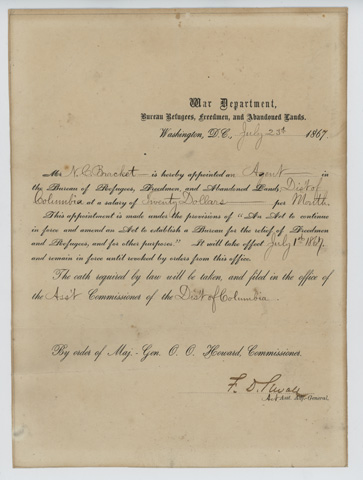 War Department,
Bureau Refugees, Freedmen, and Abandoned Lands.
Washington, D.C., July 25th 1867.
Mr N. C. Bracket is hereby appointed an Agent in
the Bureau of Refugees, Freedmen, and Abandoned Lands, Dist of
Columbia at a salary of Seventy Dollars per Month.
This appointment is made under the provisions of "An Act to continue
in force and amend an Act to establish a Bureau for the relief of Freedmen
and Refugees, and for other purposes." It will take effect July 1st 1867,
and remain in force until revoked by orders from this office.
The oath required by law will be taken, and filed in the office of
the Ass't Commissioner of the Dist of Columbia.
By order of Maj.-Gen. O. O. Howard, Commissioner.
F. D. Sewall
Act. Asst. Adj.-General.